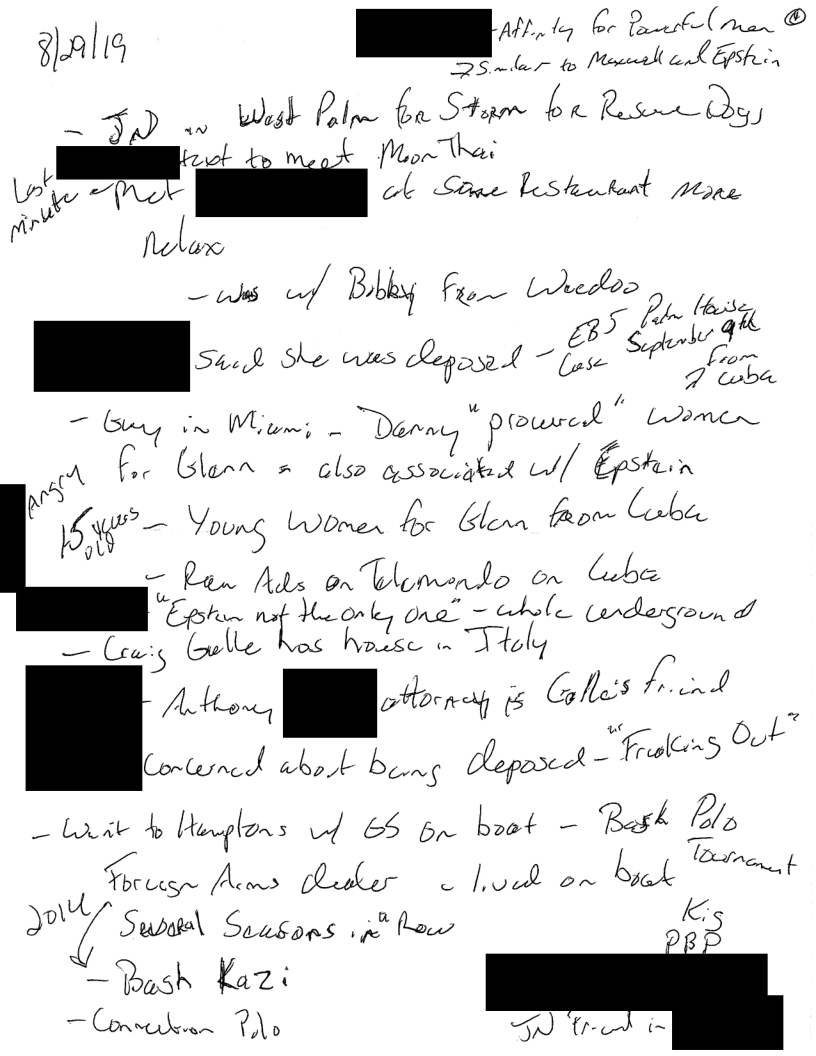 8/29/19
- Affinity for Powerful men
→ Similar to Maxwell and Epstein
- JN in West Palm for Storm for Rescue Dogs
text to meet Moon Thai
Last minute - Met at same Restaurant more
Relax
- was w/ Bobby from Weedoo
said she was deposed - EB5 Palm House
Case September 9th
from
Cuba
- Guy in Miami - Danny "procured" women
Angry for Glenn - also associated w/ Epstein
15 years old - Young Women for Glenn from Cuba
- Ran Ads on Telemondo on Cuba
"Epstein not the only one" - whole underground
- Craig Galle has house in Italy
- Anthony attorney is Galle's friend
concerned about being deposed - "Freaking Out"
- Went to Hamptons w/ GS on boat - Bash Polo
Tournament
Foreign Arms dealer - lived on boat
2014 Several Seasons in a Row
PBP
- Bash Kazi
- Connection Polo
JN friend in